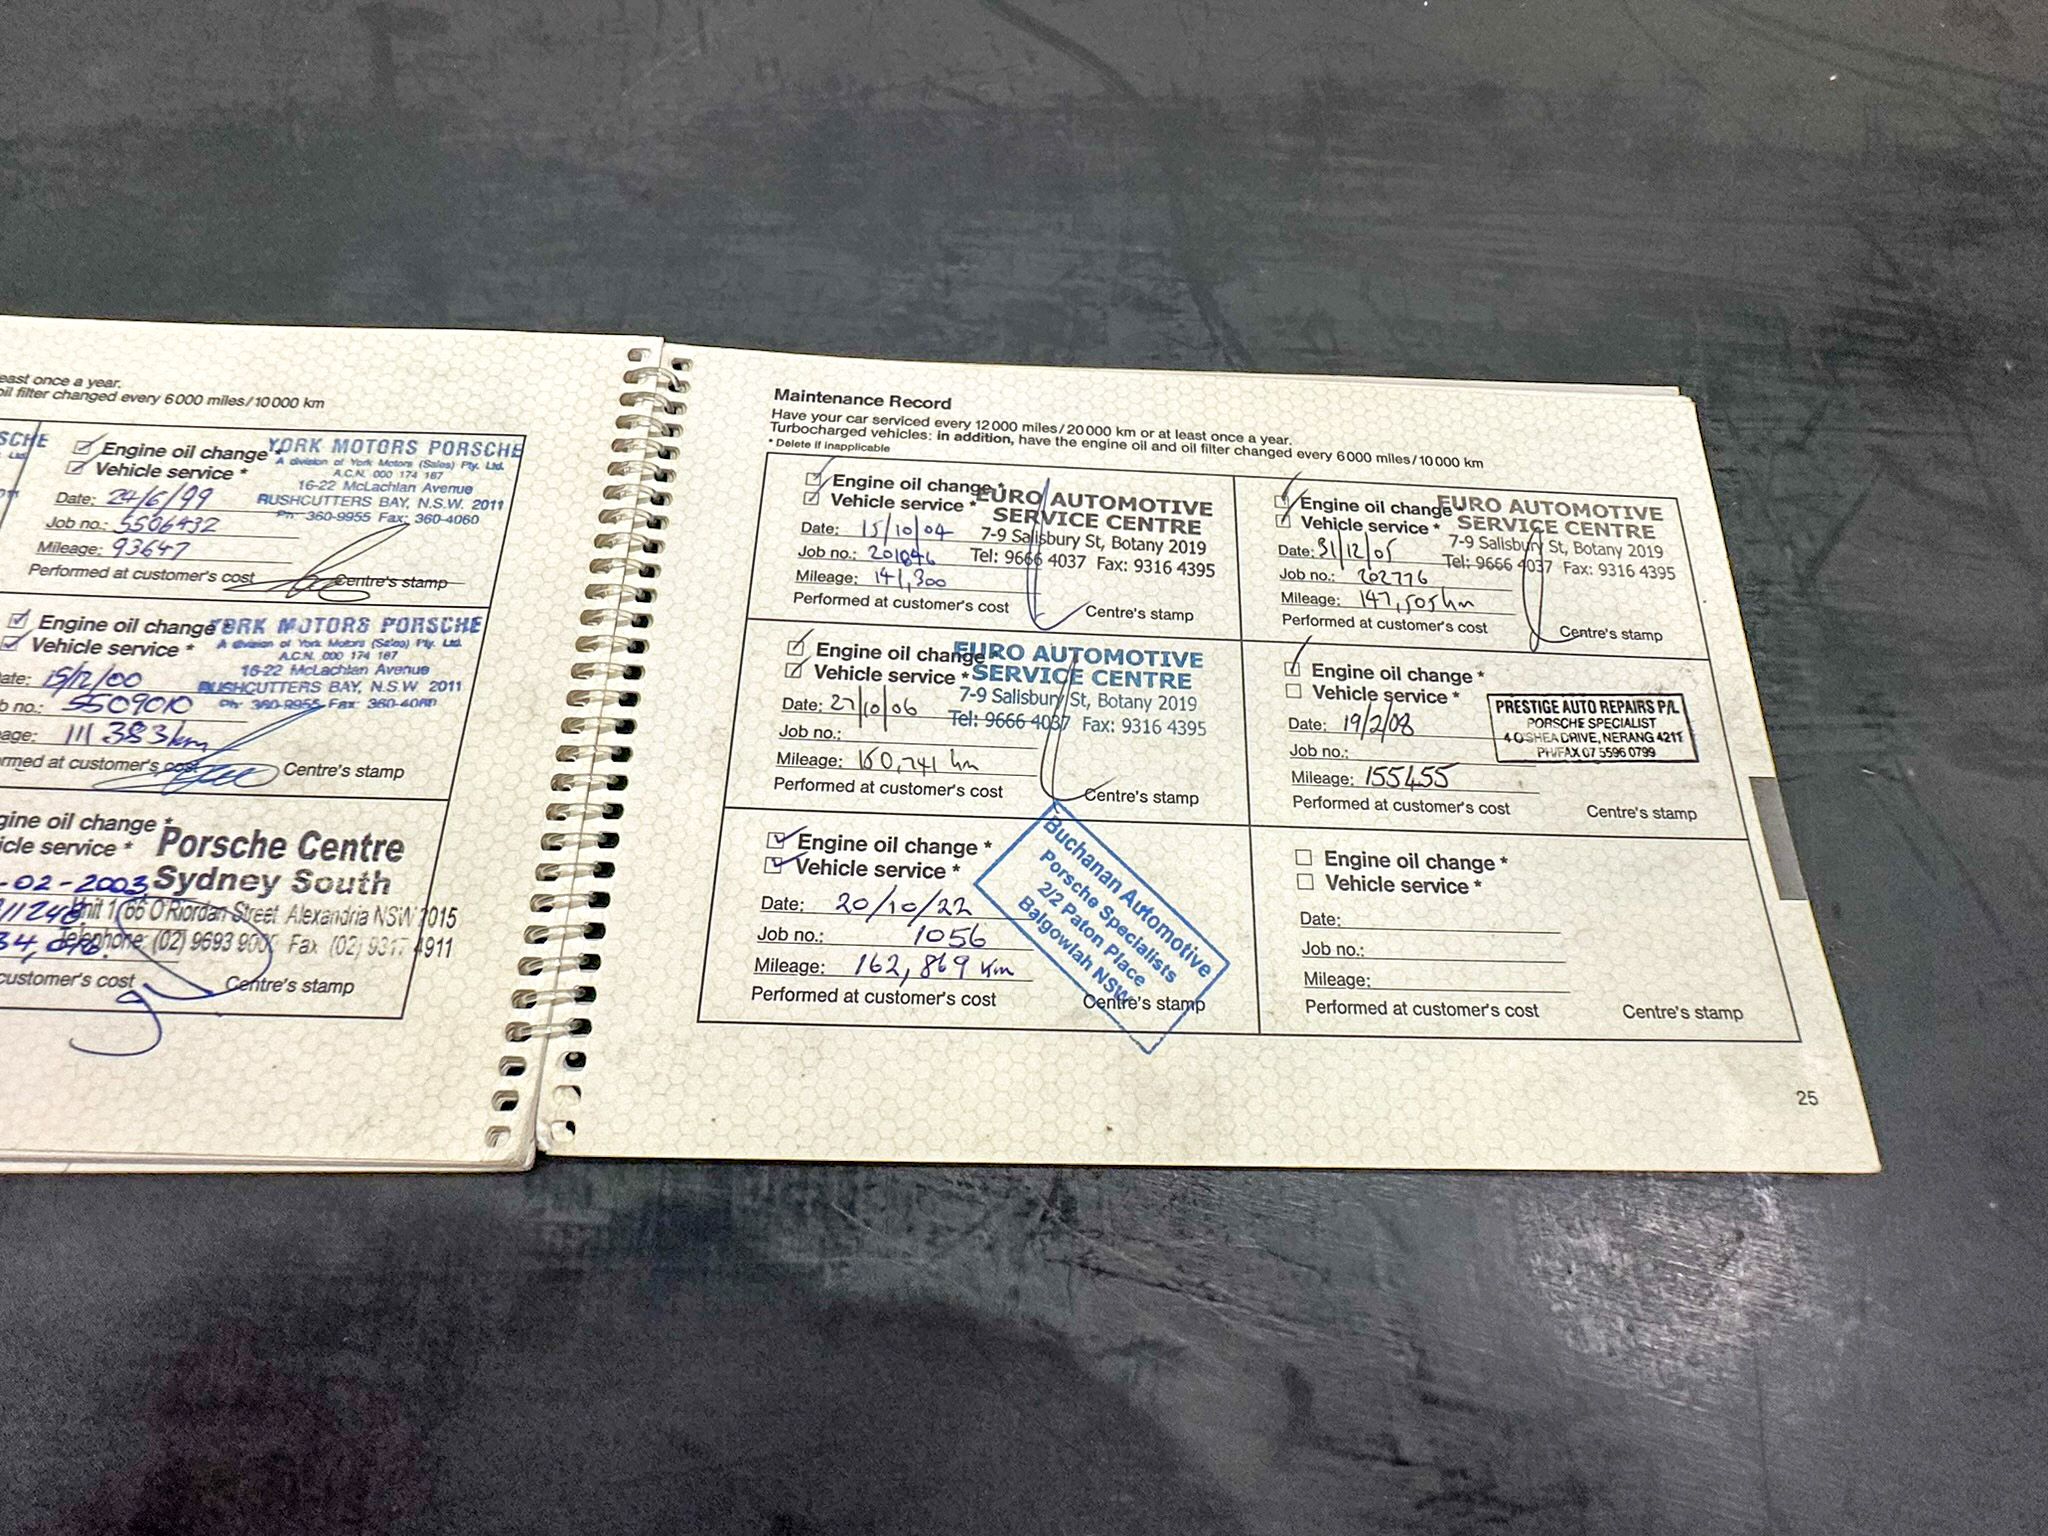 east once a year.
oil filter changed every 6000 miles/10000 km
SCHE
Ltd.
2011
Engine oil change *
Vehicle service *
YORK MOTORS PORSCHE
A division of York Motors (Sales) Pty. Ltd.
A.C.N. 000 174 187
16-22 McLachlan Avenue
RUSHCUTTERS BAY, N.S.W. 2011
Ph: 360-9955 Fax: 360-4060
Date: 24/6/99
Job no.: 5506432
Mileage: 93647
Performed at customer's cost
Centre's stamp
Engine oil change *
Vehicle service *
YORK MOTORS PORSCHE
A division of York Motors (Sales) Pty. Ltd.
A.C.N. 000 174 187
16-22 McLachlan Avenue
RUSHCUTTERS BAY, N.S.W. 2011
Ph: 360-9955 Fax: 360-4060
ate: 15/12/00
b no.: 5509010
age: 111 383 km
rmed at customer's cost
Centre's stamp
gine oil change *
icle service *
Porsche Centre
Sydney South
Unit 1, 66 O'Riordan Street Alexandria NSW 2015
Telephone: (02) 9693 9000 Fax (02) 9317 4911
-02-2003
11248
34,
customer's cost
Centre's stamp
Maintenance Record
Have your car serviced every 12000 miles/20000 km or at least once a year.
Turbocharged vehicles: in addition, have the engine oil and oil filter changed every 6000 miles/10000 km
* Delete if inapplicable
Engine oil change *
Vehicle service *
EURO AUTOMOTIVE
SERVICE CENTRE
7-9 Salisbury St, Botany 2019
Tel: 9666 4037 Fax: 9316 4395
Date: 15/10/04
Job no.: 201046
Mileage: 141,300
Performed at customer's cost
Centre's stamp
Engine oil change
Vehicle service *
EURO AUTOMOTIVE
SERVICE CENTRE
7-9 Salisbury St, Botany 2019
Tel: 9666 4037 Fax: 9316 4395
Date: 31/12/05
Job no.: 202776
Mileage: 147,505 km
Performed at customer's cost
Centre's stamp
Engine oil change *
Vehicle service *
EURO AUTOMOTIVE
SERVICE CENTRE
7-9 Salisbury St, Botany 2019
Tel: 9666 4037 Fax: 9316 4395
Date: 27/10/06
Job no.:
Mileage: 150,741 km
Performed at customer's cost
Centre's stamp
Engine oil change *
Vehicle service *
PRESTIGE AUTO REPAIRS P/L
PORSCHE SPECIALIST
4 OSHEA DRIVE, NERANG 4211
PH/FAX 07 5596 0799
Date: 19/2/08
Job no.:
Mileage: 155455
Performed at customer's cost
Centre's stamp
Engine oil change *
Vehicle service *
Buchanan Automotive
Porsche Specialists
2/2 Paton Place
Balgowlah NSW
Date: 20/10/22
Job no.: 1056
Mileage: 162,869 km
Performed at customer's cost
Centre's stamp
Engine oil change *
Vehicle service *
Date:
Job no.:
Mileage:
Performed at customer's cost
Centre's stamp
25